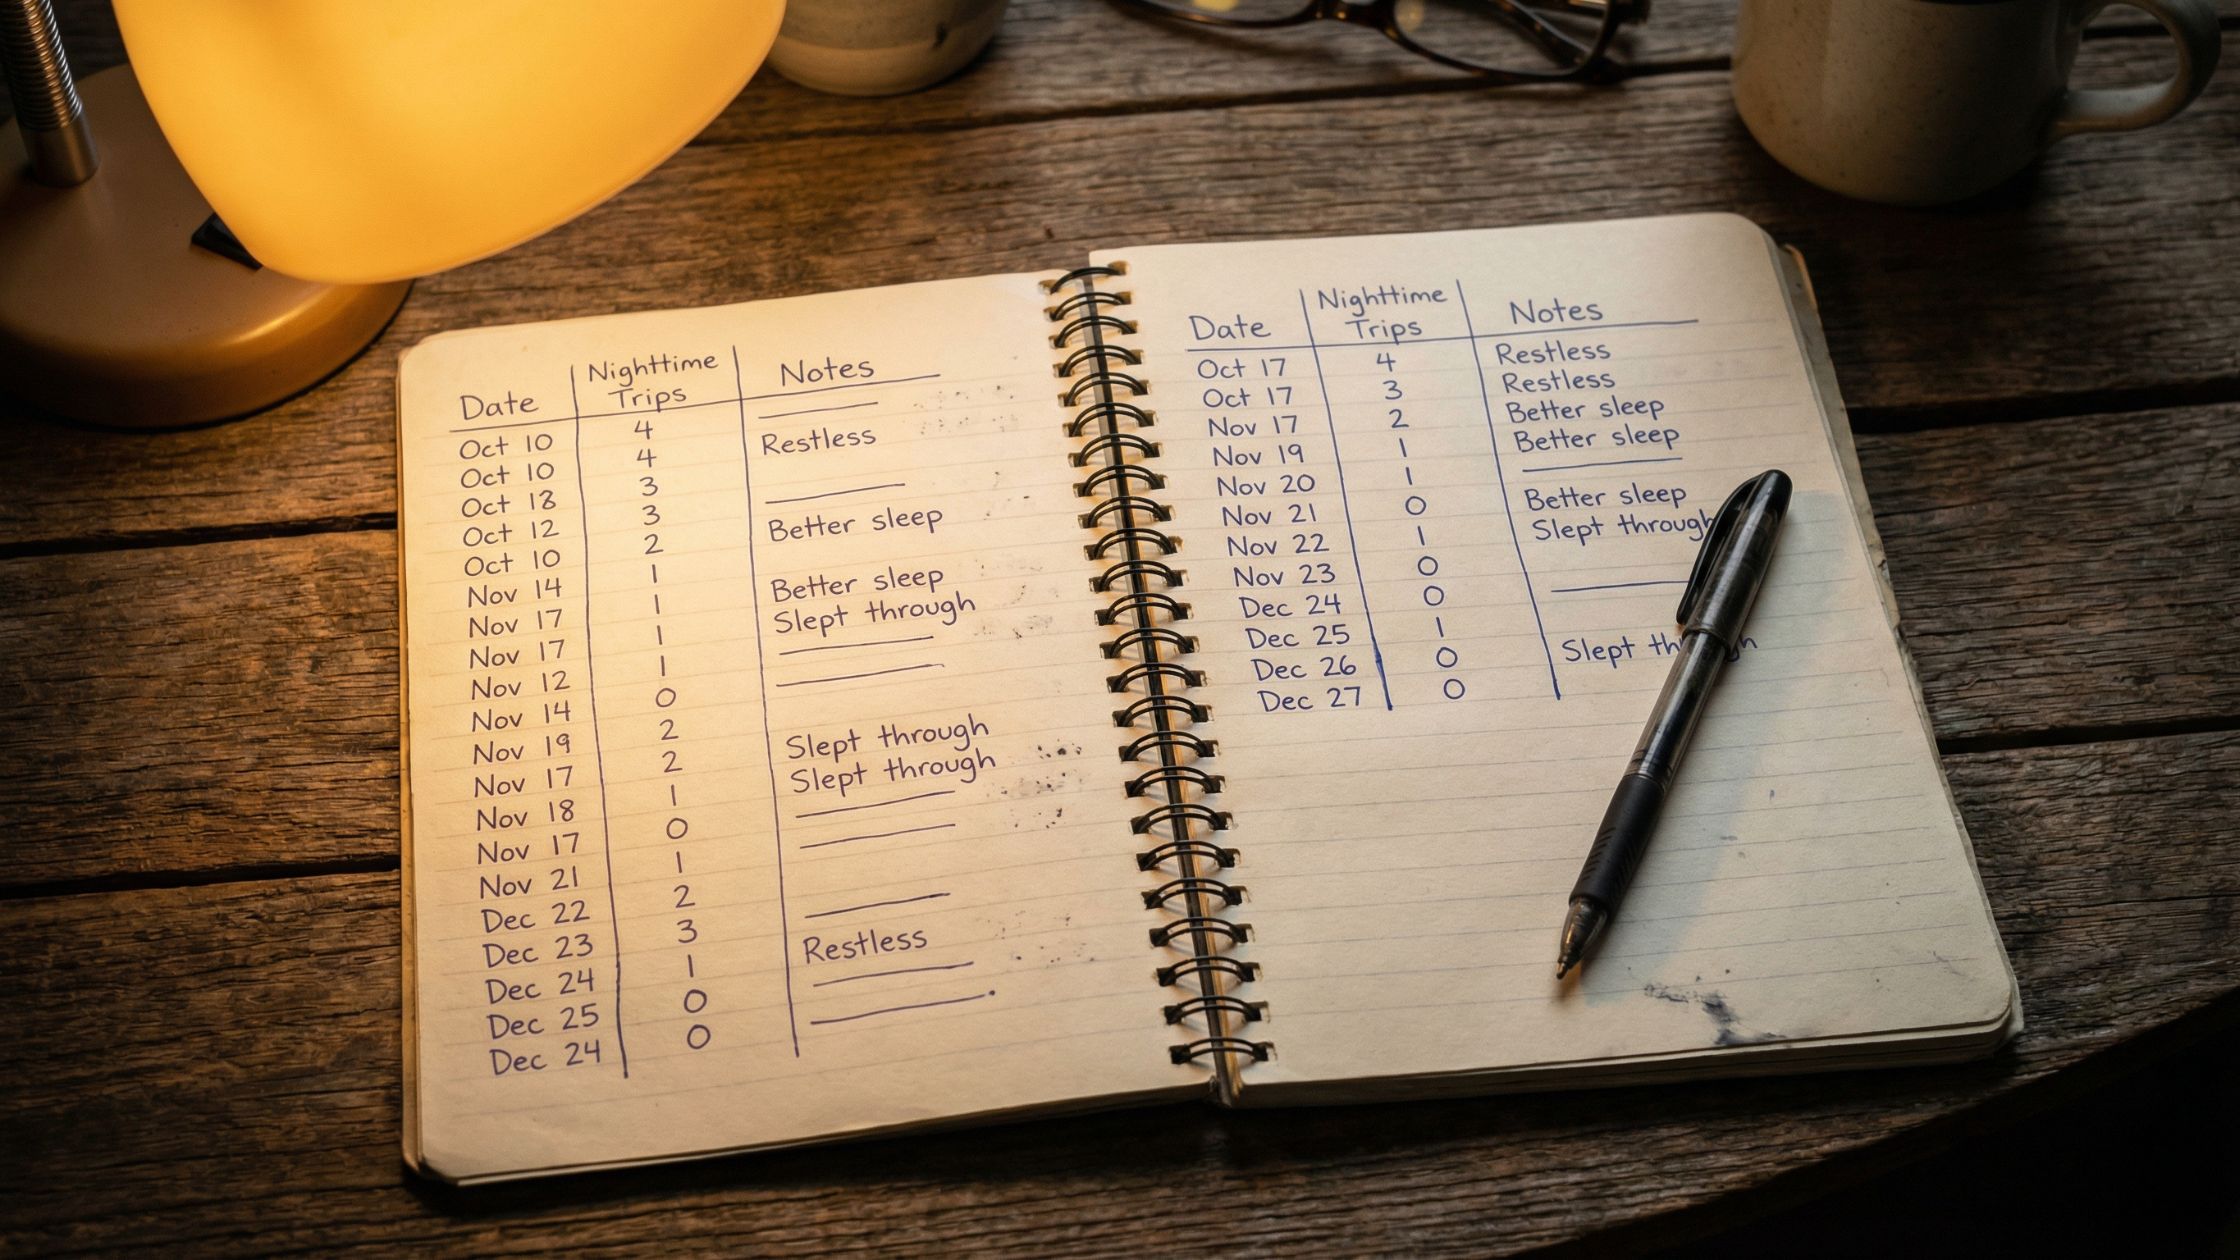 Date Nighttime Trips Notes
Oct 10 4
Oct 10 4 Restless
Oct 18 3
Oct 12 3
Oct 10 2 Better sleep
Nov 14 1
Nov 17 1 Better sleep
Nov 17 1 Slept through
Nov 12 1
Nov 14 0
Nov 19 2
Nov 17 2 Slept through
Nov 18 1 Slept through
Nov 17 0
Nov 21 1
Dec 22 2
Dec 23 3
Dec 24 1 Restless
Dec 25 0
Dec 24 0
Date Nighttime Trips Notes
Oct 17 4 Restless
Oct 17 3 Restless
Nov 17 2 Better sleep
Nov 19 1 Better sleep
Nov 20 1
Nov 21 0 Better sleep
Nov 22 1 Slept through
Nov 23 0
Dec 24 0
Dec 25 1
Dec 26 0 Slept through
Dec 27 0